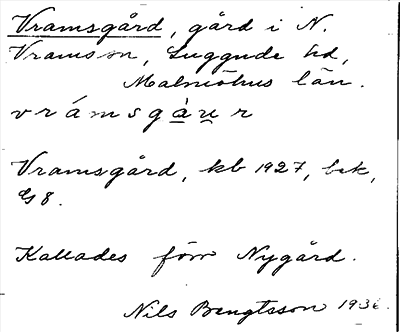 Vramsgård, gård i N.
Vrams sn, Luggude hd,
Malmöhus län.
v r á m s g à u r
Vramsgård, kb 1927, bek,
G 8.
Kallades förr Nygård.
Nils Bengtsson 1936.